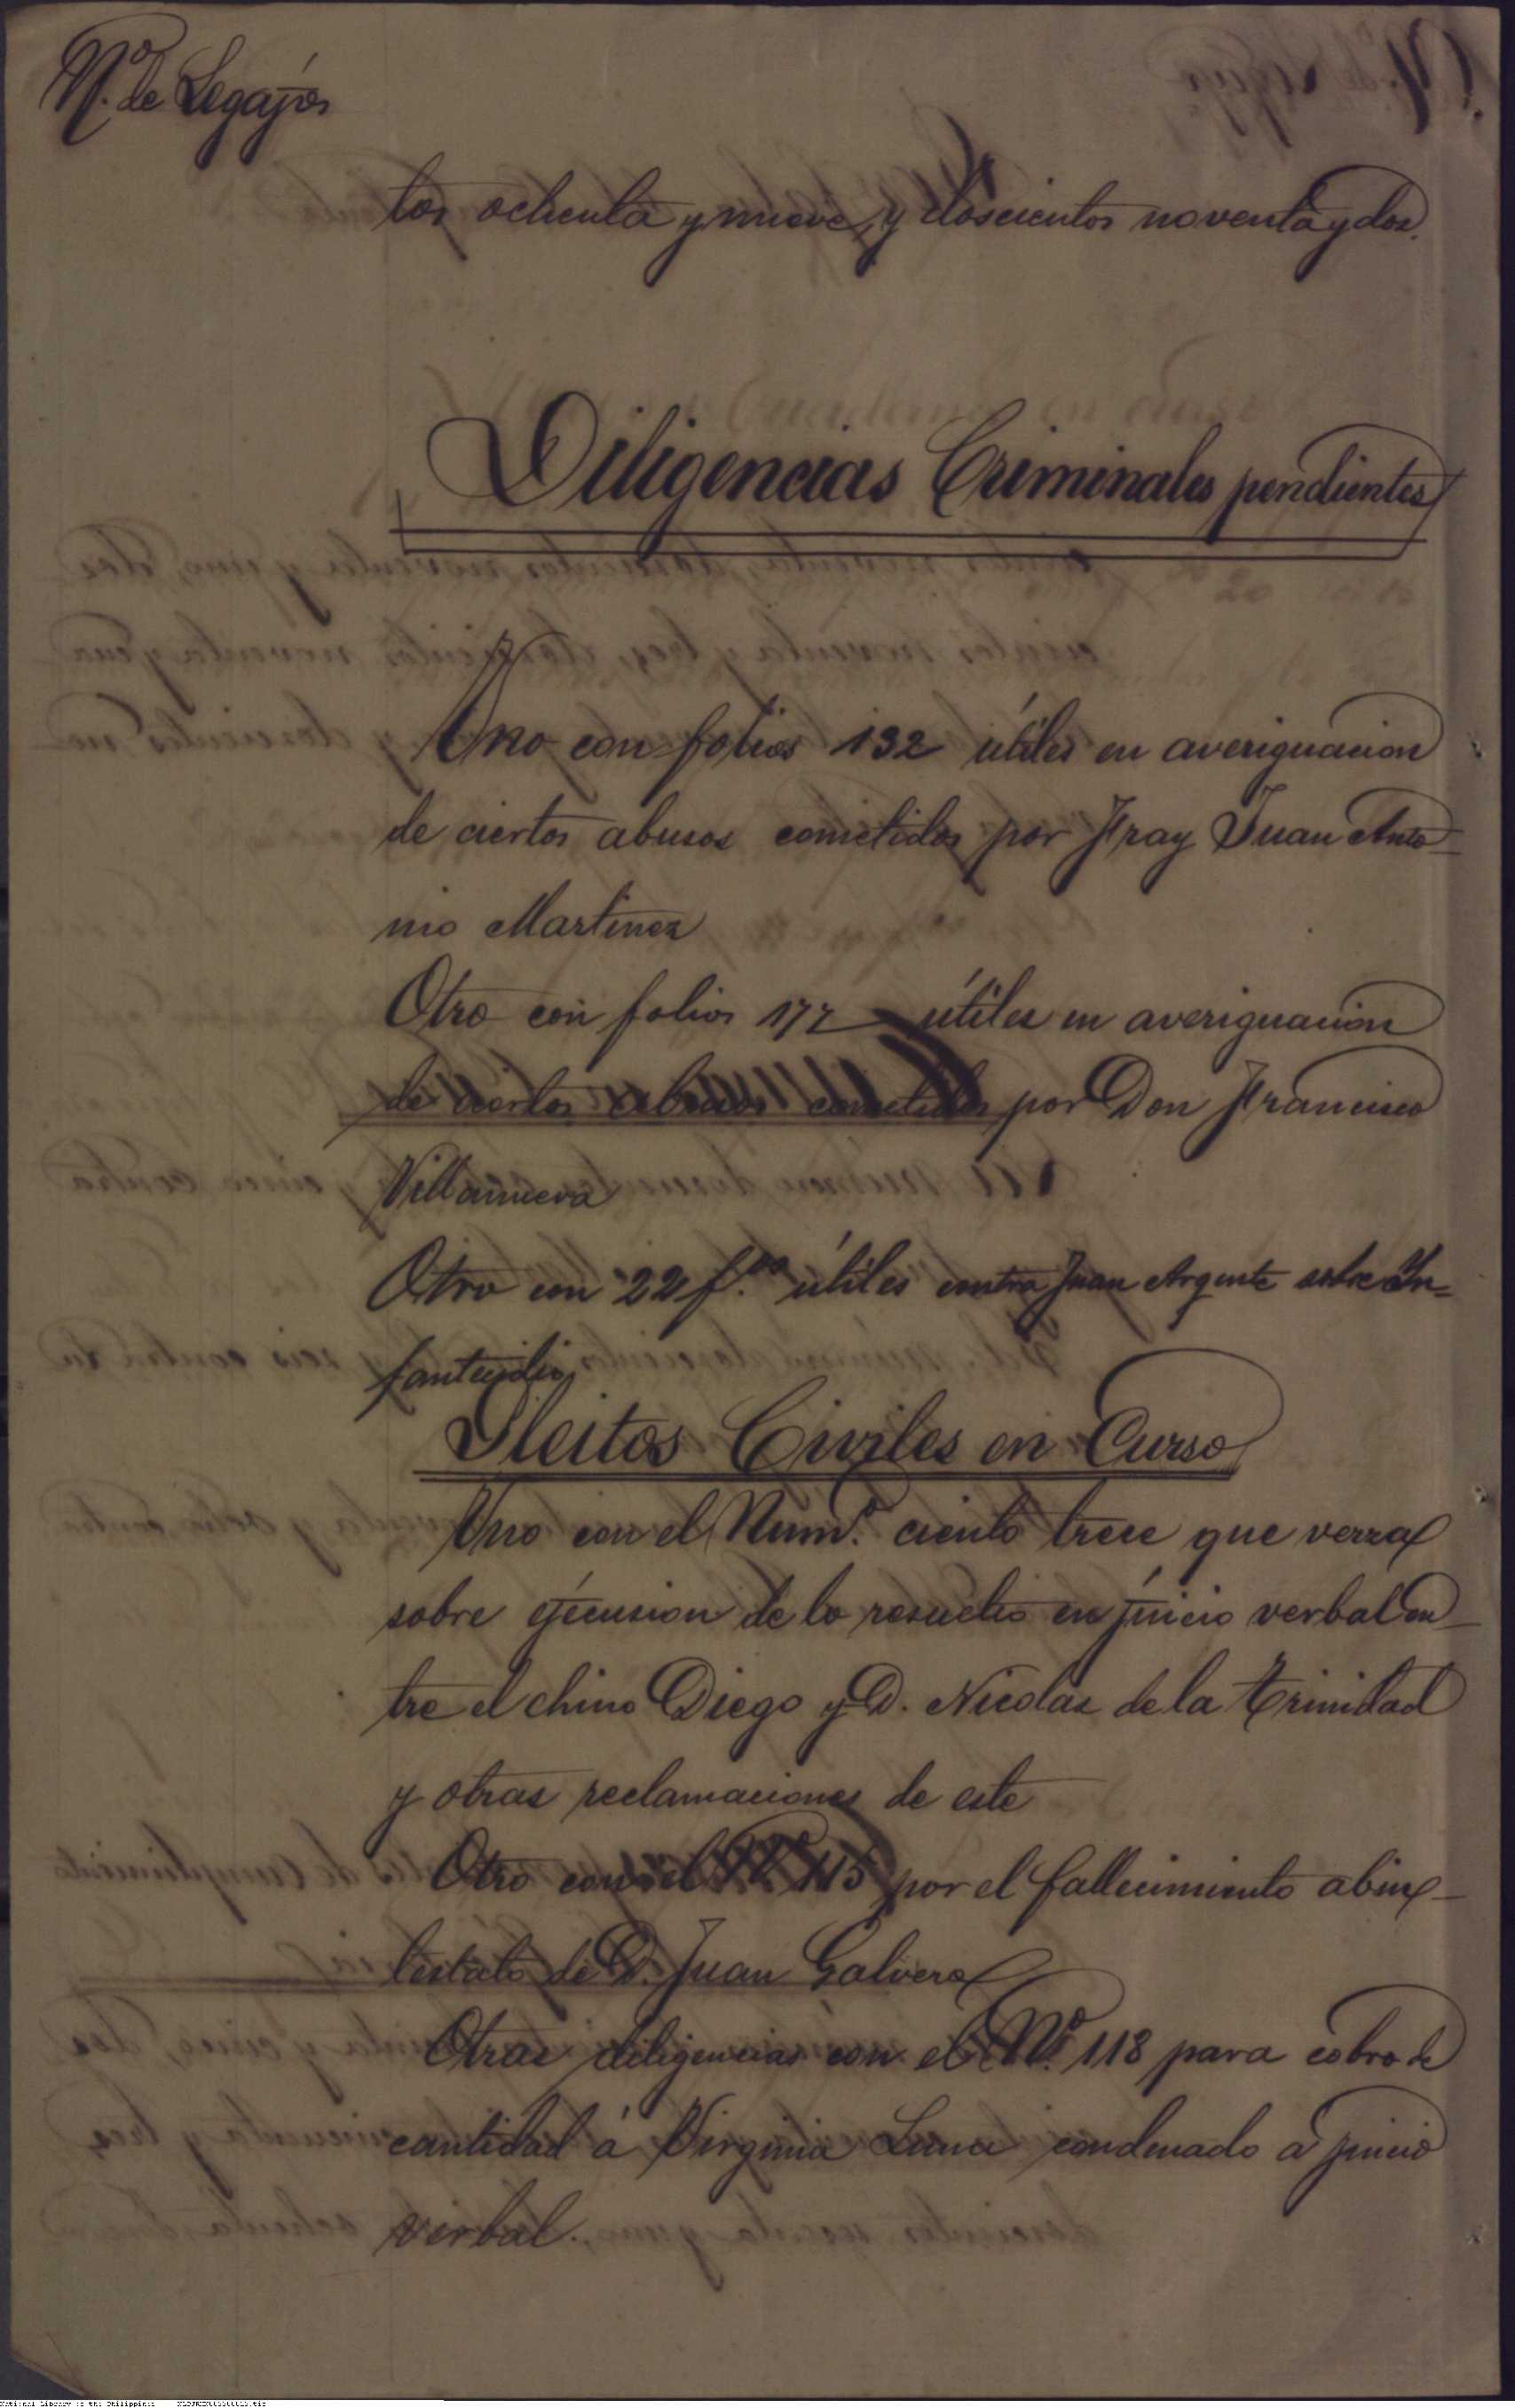 Nº. de Legajos
tos ochenta y nueve, y doscientos noventa y dos.
Diligencias Criminales pendientes
Uno con folios 132 útiles en averiguacion
de ciertos abusos cometidos por Fray Juan Anto-
nio Martinez
Otro con folios 177 útiles en averiguacion
de ciertos abusos cometidos por Don Francisco
Villanueva
Otro con 22 f.os útiles contra Juan Argente sobre In=
fanticidio
Pleitos Civiles en Curso
Uno con el Numº. ciento trece que verza
sobre ejecusion de lo resuelto en juicio verbal en-
tre el chino Diego y D. Nicolas de la Trinidad
y otras reclamaciones de este
Otro con el Nº 115 por el fallecimiento abin-
testato de D. Juan Galvera
Otras diligencias con el Nº. 118 para cobro de
cantidad á Virginia Luna condenado á juicio
verbal.
National Library of the Philippines